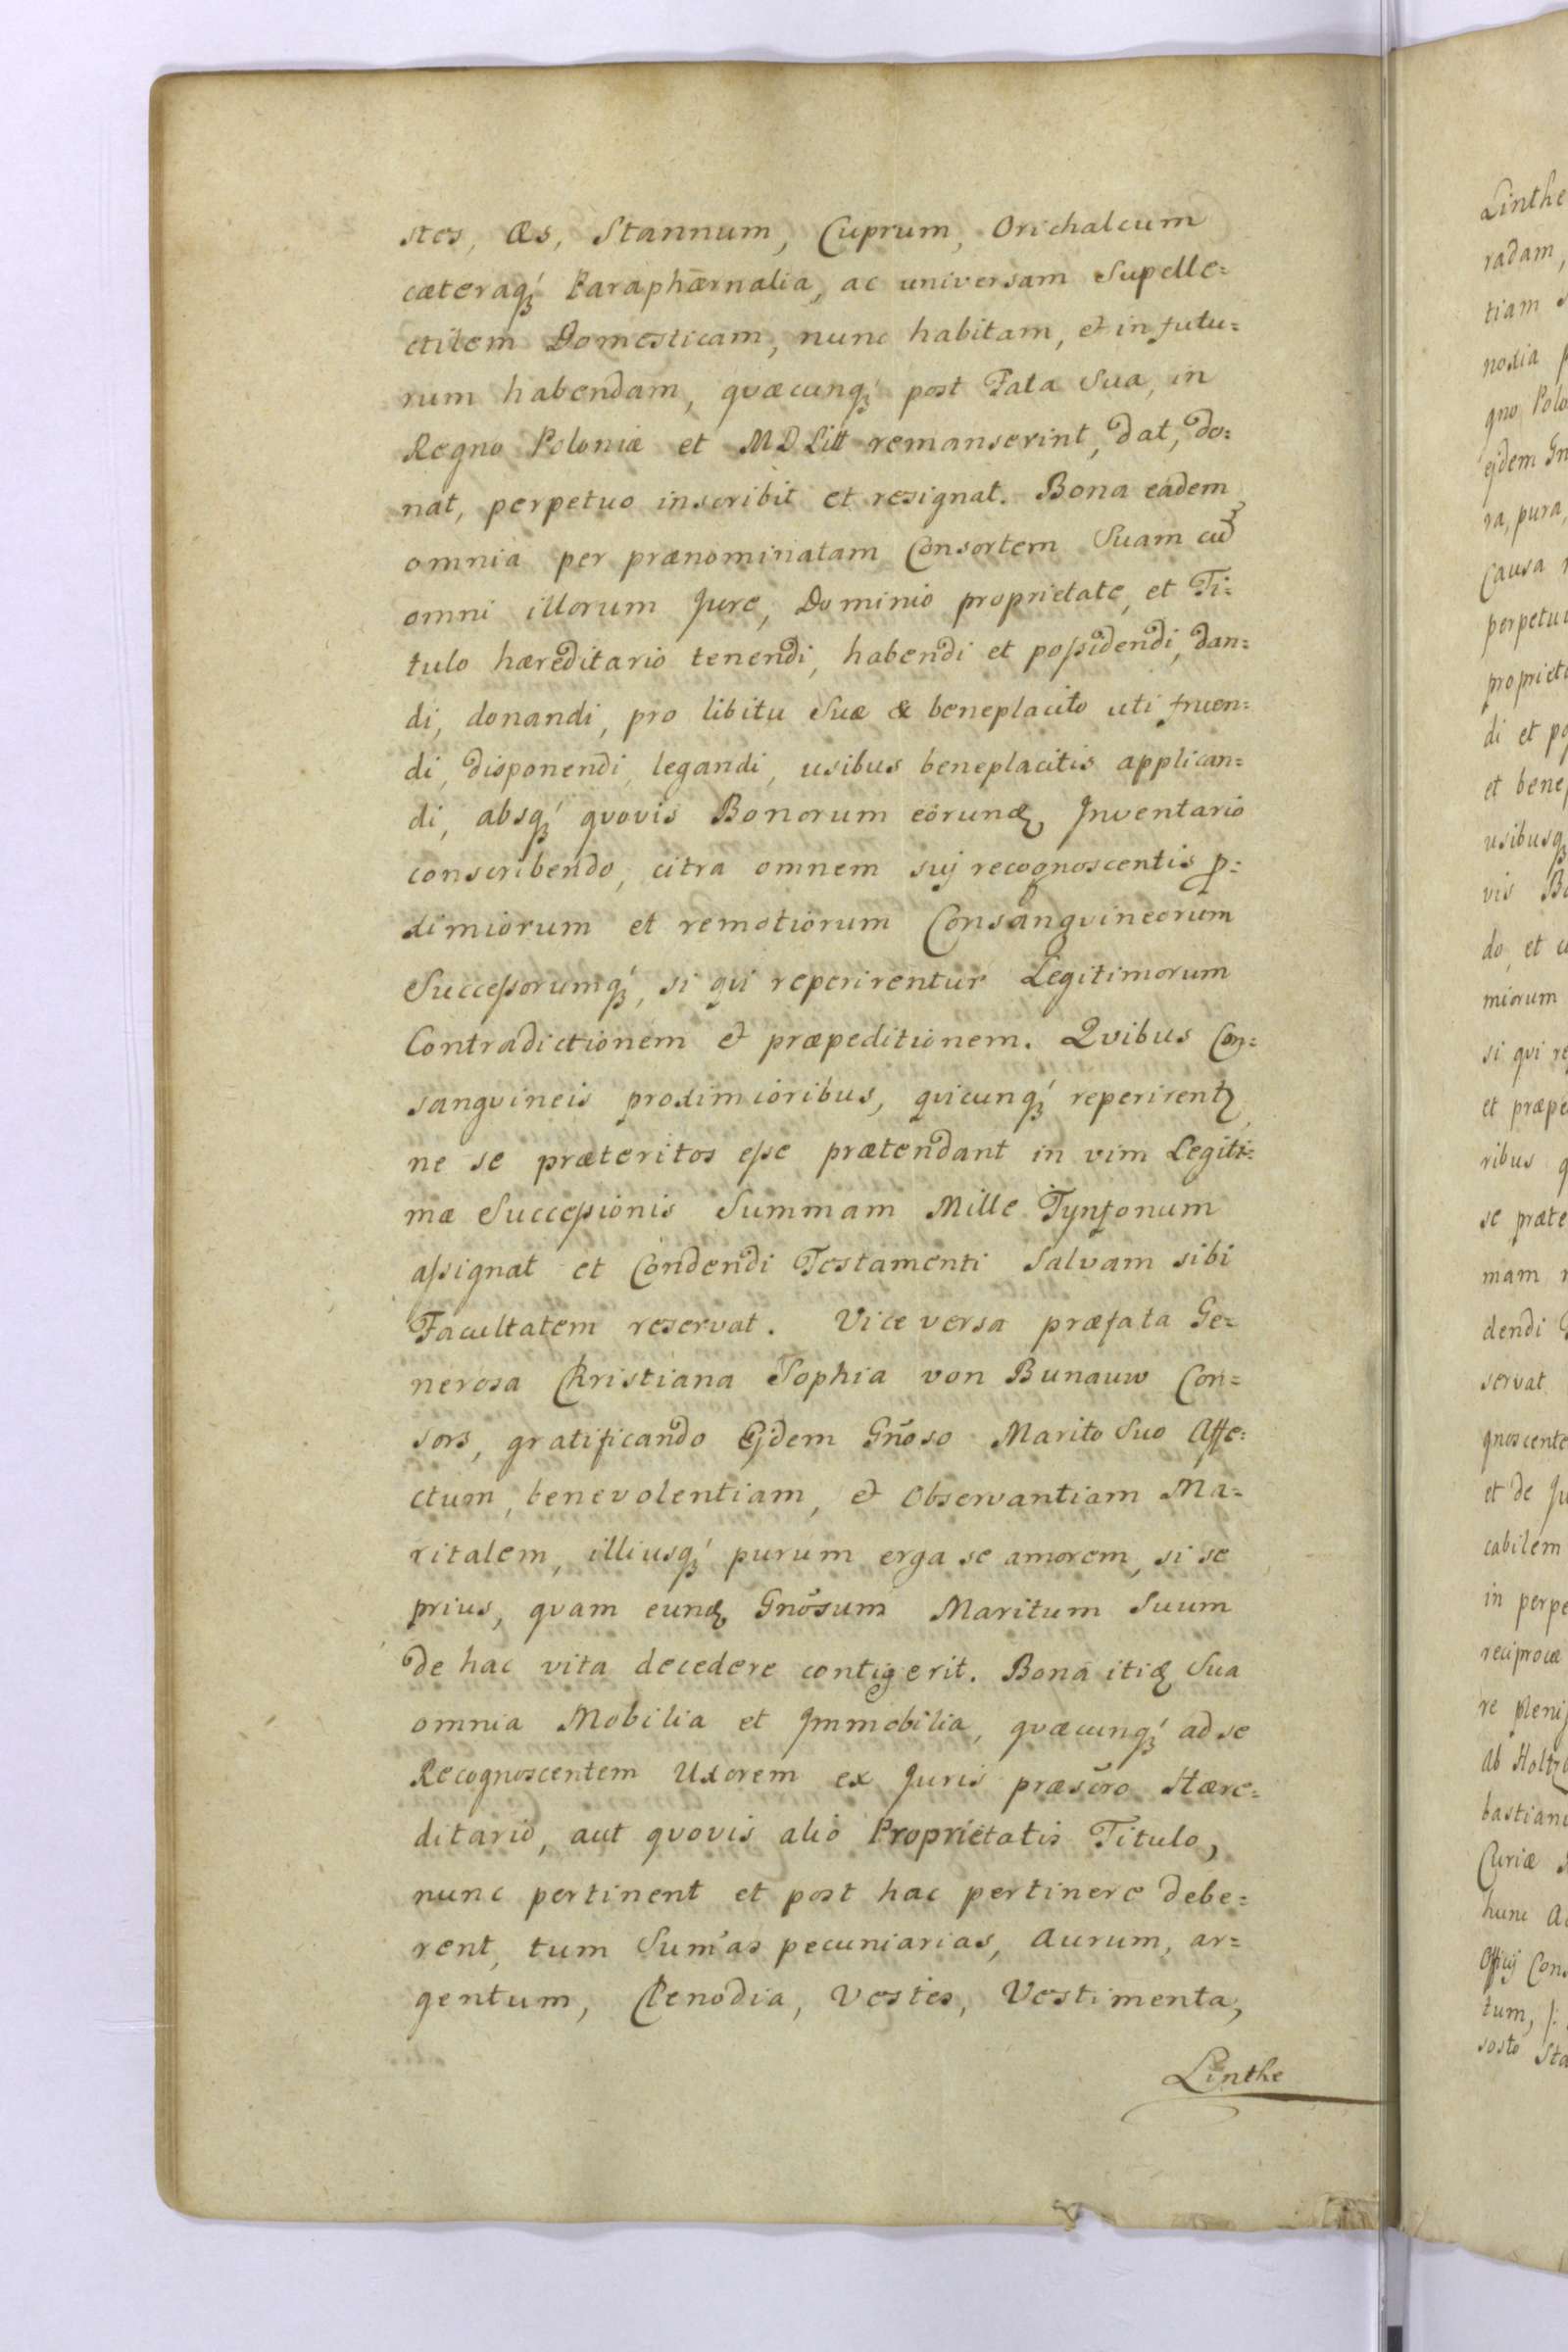 stes, Æs, Stannum, Cuprum, Orichalcum
cæteraq́ Paraphærnalia, ac universam Supelle=
ctilem Domesticam, nunc habitam, et in futu=
rum habendam, qvæcunq́ post Fata Sua, in
Regno Poloniæ et MDLitt remanserint, dat, do=
nat, perpetuo inscribit et resignat. Bona eadem
omnia per prænominatam Consortem Suam cu̅
omni illorum Jure, Dominio proprietate, et Ti=
tulo hæreditario tenendi, habendi et possidendi, dan=
di, donandi, pro libitu Suæ & beneplacito uti fruen=
di, disponendi, legandi, usibus beneplacitis applican=
di, absq́ qvovis Bonorum eorundꝫ Inventario
conscribendo, citra omnem suj recognoscentis p=
ximiorum et remotiorum Consangvineorum
Successorumq́, si qvi reperirentur Legitimorum
Contradictionem et præpeditionem. Qvibus Con=
sangvineis proximioribus, qvicunq́ reperirentꝫ,
ne se præteritos esse prætendant in vim Legiti=
mæ Successionis Summam Mille Tynfonum
assignat et Condendi Testamenti Salvam sibi
Facultatem reservat. Vice versa præfata Ge=
nerosa Christiana Sophia von Bunauw Con=
sors, gratificando Ejdem Gn̅oso Marito Suo Affe=
ctum, benevolentiam, et Observantiam Ma=
ritalem, illiusq́ purum erga se amorem, si se
prius, qvam eundꝫ Gno̅sum Maritum Suum
de hac vita decedere contigerit. Bona itidꝫ Sua
omnia Mobilia et Immobilia, qvæcunq́ ad se
Recognoscentem Uxorem ex Juris præscr̅o Hære=
ditario, aut qvovis alio Proprietatis Titulo,
nunc pertinent et post hac pertinere debe=
rent, tum Sum̅as pecuniarias, Aurum, ar=
gentum, Clenodia, Vestes, Vestimenta,
Linthe
Linthe
radam,
tiam
nodia
gno Polo
ejdem Gn
ra, pura,
Causa
perpetu
propriet
di et po
et benep
usibusq́
vis Bo
do, et c
miorum
si qvi re
et præpe
ribus q
se præte
mam
dendi
servat
gnoscente
et de Ju
cabilem
in perpe
reciproce
re pleni
ab Holtz
bastian
Curiæ
hunc A
Officij Con
tum,
sosto Sta